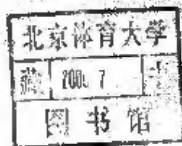 北京体育大学
藏 200 . 7 书
图书馆